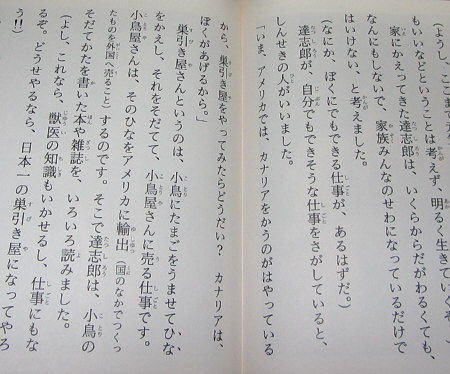 （よし、ここまで
もいいなどということは考えず、明るく生きていくぞ
家にかえってきた達志郎は、いくらからだがわるくても、
なんにもしないで、家族みんなのせわになっているだけで
はいけない、と考えました。
（なにか、ぼくにでもできる仕事が、あるはずだ。）
達志郎が、自分でもできそうな仕事をさがしていると、
しんせきの人がいいました。
「いま、アメリカでは、カナリアをかうのがはやっている
から、巣引き屋をやってみたらどうだい？　カナリアは、
ぼくがあげるから。」
巣引き屋さんというのは、小鳥にたまごをうませてひな
をかえし、それをそだてて、小鳥屋さんに売る仕事です。
小鳥屋さんは、そのひなをアメリカに輸出（国のなかでつくっ
たものを外国へ売ること）するのです。そこで達志郎は、小鳥の
そだてかたを書いた本や雑誌を、いろいろ読みました。
（よし、これなら、獣医の知識もいかせるし、仕事にもな
るぞ。どうせやるなら、日本一の巣引き屋になってやろ
う!!）